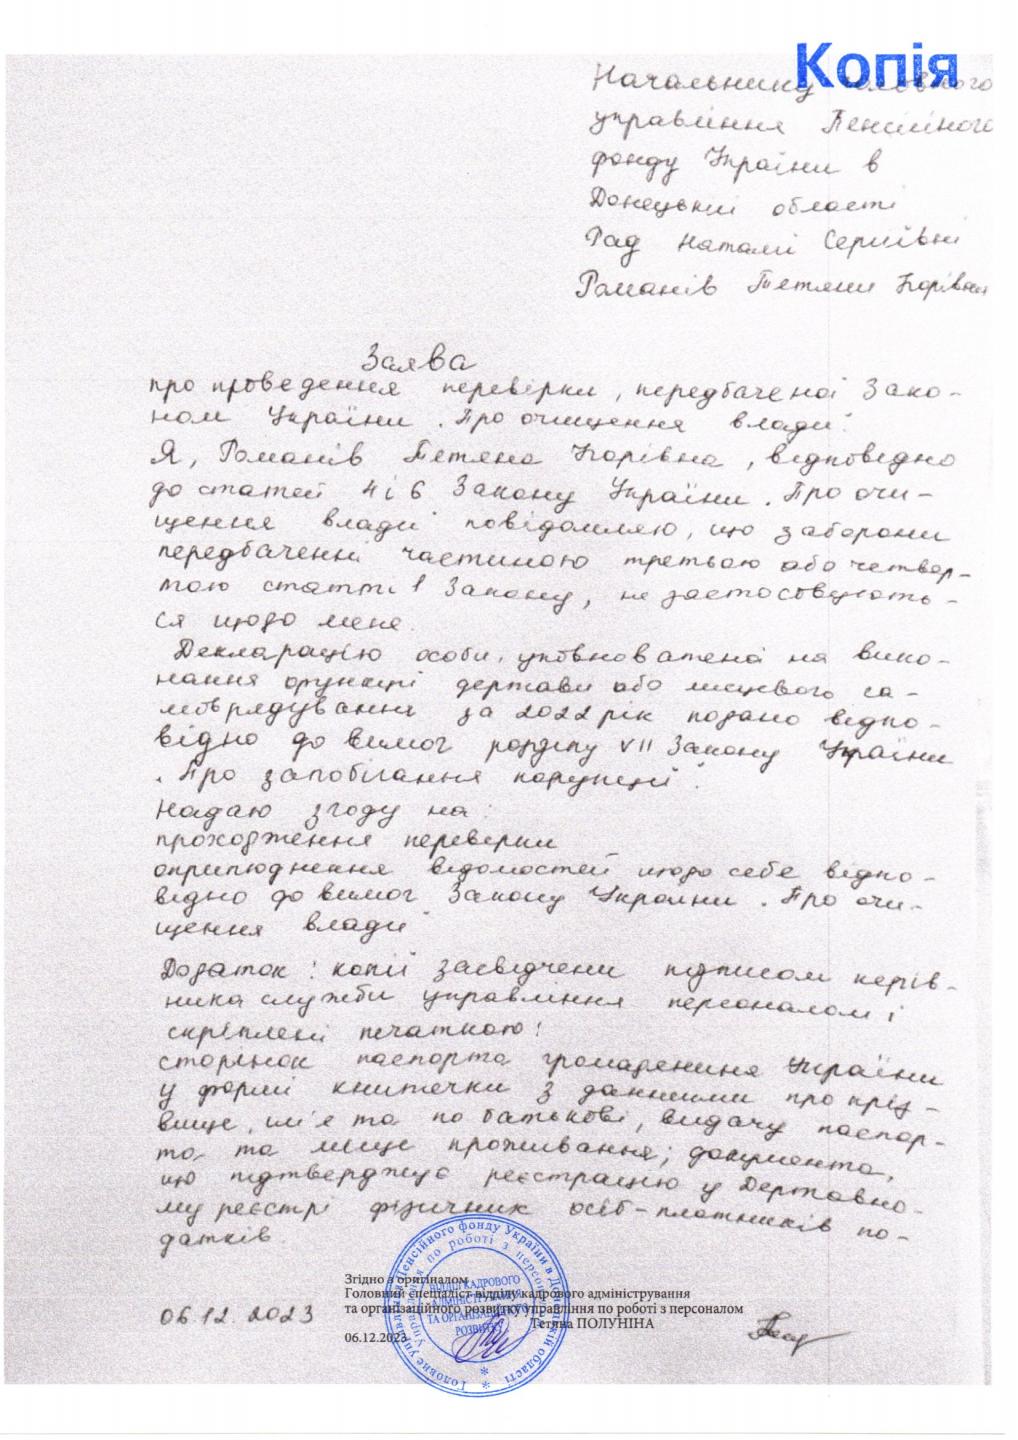 Копія
Начальнику Головного
управління Пенсійного
фонду України в
Донецькій області
Рад Наталії Сергіївні
Романів Тетяни Ігорівни
Заява
про проведення перевірки, передбаченої Зако-
ном України „Про очищення влади"
Я, Романів Тетяна Ігорівна, відповідно
до статей 4 і 6 Закону України „Про очи-
щення влади" повідомляю, що заборони
передбаченні частиною третьою або четвер-
тою статті 1 Закону, не застосовують-
ся щодо мене.
Декларацію особи, уповноваженої на вико-
нання функції держави або місцевого са-
моврядування за 2022 рік подано відпо-
відно до вимог розділу VII Закону України
„Про запобігання корупції".
Надаю згоду на:
проходження перевірки
оприлюднення відомостей щодо себе відпо-
відно до вимог Закону України „Про очи-
щення влади"
Додаток: копії засвідчени підписом керів-
ника служби управління персоналом і
скріплені печаткою:
сторінок паспорта громадянина України
у формі книжечки з данними про пріз-
вище, ім'я та по батькові, видачу паспор-
та, та місце проживання; документа,
що підтверджує реєстрацію у Державно-
му реєстрі фізичних осіб-платників по-
датків.
06.12.2023
Згідно з оригіналом
Головний спеціаліст відділу кадрового адміністрування
та організаційного розвитку управління по роботі з персоналом
Тетяна ПОЛУНІНА
06.12.2023
Головне управління Пенсійного фонду України в Донецькій області
Управління по роботі з персоналом
ВІДДІЛ КАДРОВОГО
АДМІНІСТРУВАННЯ
ТА ОРГАНІЗАЦІЙНОГО
РОЗВИТКУ